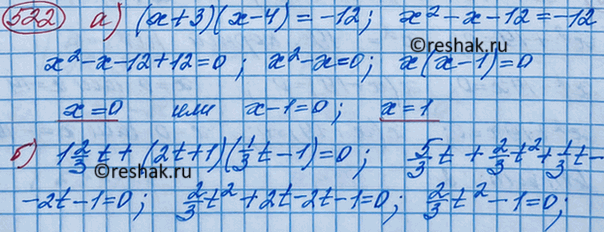 522 а) (x+3)(x-4) = -12; x²-x-12=-12
©reshak.ru
x²-x-12+12=0; x²-x=0; x(x-1)=0
x=0 или x-1=0; x=1
б) 1 2/3 t + (2t+1)(1/3 t - 1) = 0; 5/3 t + 2/3 t² + 1/3 t -
©reshak.ru
-2t-1=0; 2/3 t² + 2t - 2t - 1 = 0; 2/3 t² - 1 = 0;